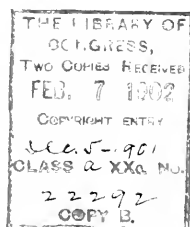 THE LIBRARY OF
CONGRESS,
TWO COPIES RECEIVED
FEB. 7 1902
COPYRIGHT ENTRY
Dec. 5-1901
CLASS a XXc. No.
22292
COPY B.